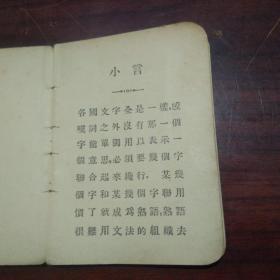 小言
各國文字全是一樣,
嘆詞之外沒有那一個
字能單獨用以表示一
個意思,必須要幾個字
聯合起來
個字和某幾個字聯用
慣了就成為熟語,熟語
很難用文法的組織去